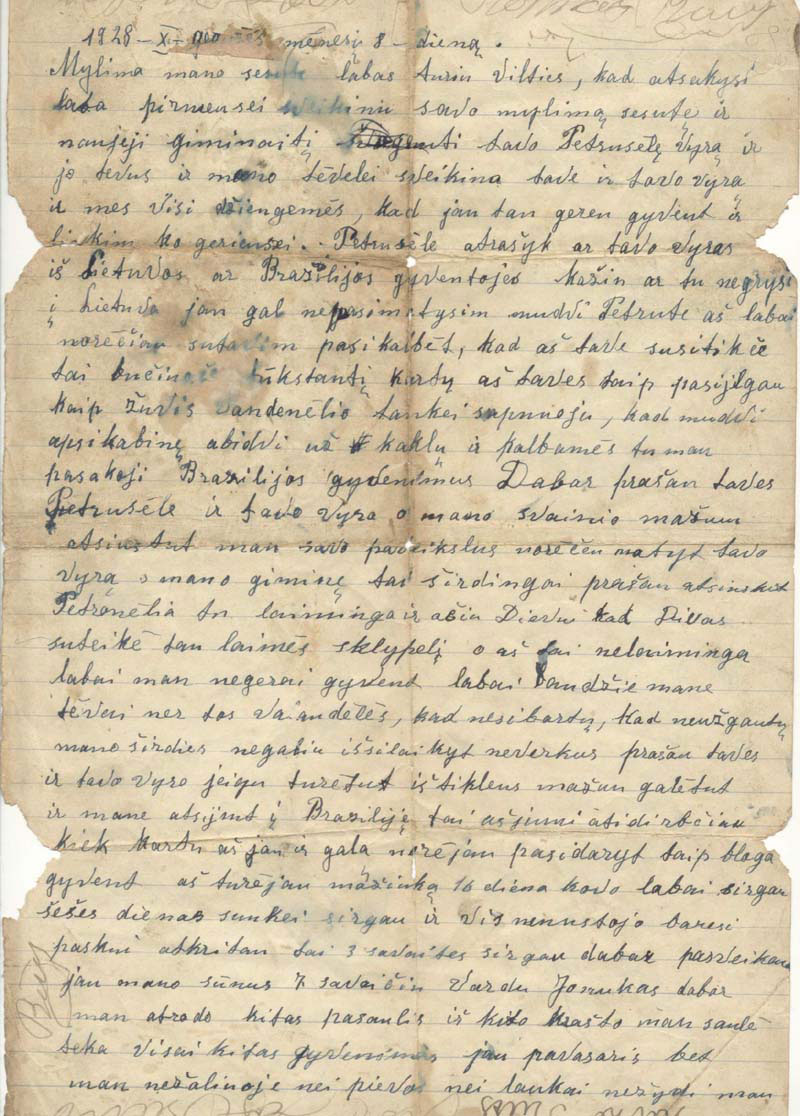 1928 – X – mėnesį 8 – dieną.
Mylima mano sesute labas turiu vilties, kad atsakysi
laba pirmensei sveikinu savo mylimą sesutę ir
naujeji giminaitį tavo Petruselę vyrą ir
jo tevus ir mano tėvelei sveikina tave ir tavo vyrą
ir mes visi džiengemės, kad jau tau geren gyvent ir
linkim ko geriensei. Petrusėle atrašyk ar tavo vyras
iš Lietuvos ar Brazilijos gyventojes kažin ar tu negrysi
į Lietuva jau gal nepasimatysim mudvi Petrute aš labai
norėčiau sutavim pasikalbėt, kad aš tave susitikče
tai bučinoče tūkstantį kartų aš taves taip pasijlgau
kaip žuvis vandenėlio tankei sapnuoju, kad mudvi
apsikabinę abidvi už kaklu ir kalbamės tu man
pasakoji Brazilijos gyvenimus Dabar prašau taves
Petrusėle ir tavo vyra o mano svainio mažum
atsiustut man savo paveikslus norėčeu matyt tavo
vyrą o mano giminę tai širdingai prašau atsiuskit
Petronėlia tu laiminga ir ačiu Dievui kad Divas
suteikė tau laimės sklypelį o aš tai nelaiminga
labai man negerai gyvent labai baudžie mane
tėvai ner tos valandėlės, kad nesibartų, kad neužgautų
mano širdies negaliu išsilaikyt neverkus prašau taves
ir tavo vyro jeigu turetut ištiklens mažan galėtut
ir mane atsijmt į Braziliję tai aš jumi atidirbčiau
Kiek kartu aš jau ir gala norėjau pasidaryt taip bloga
gyvent aš turėjau mažinką 16 diena kovo labai sirgau
šešes dienas sunkei sirgau ir vis nenustojo baresi
paskui atkritau tai 3 savaites sirgau dabar pasveikau
jau mano sūnus 7 savaičiu vardu Jonukas dabar
man atrodo kitas pasaulis iš kito krašto man saulė
teka visai kitas gyvenimas jau pavasaris bet
man nežalinoje nei pievos nei laukai nežydi man